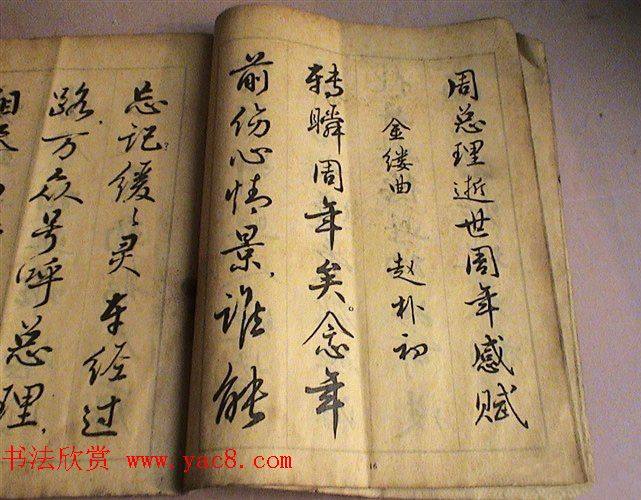 周总理逝世周年感赋
金缕曲 赵朴初
转瞬周年矣。念年
前伤心情景,谁能
忘记?缓缓灵车经过
路,万众号呼总理,
书法欣赏 www.yac8.com
16